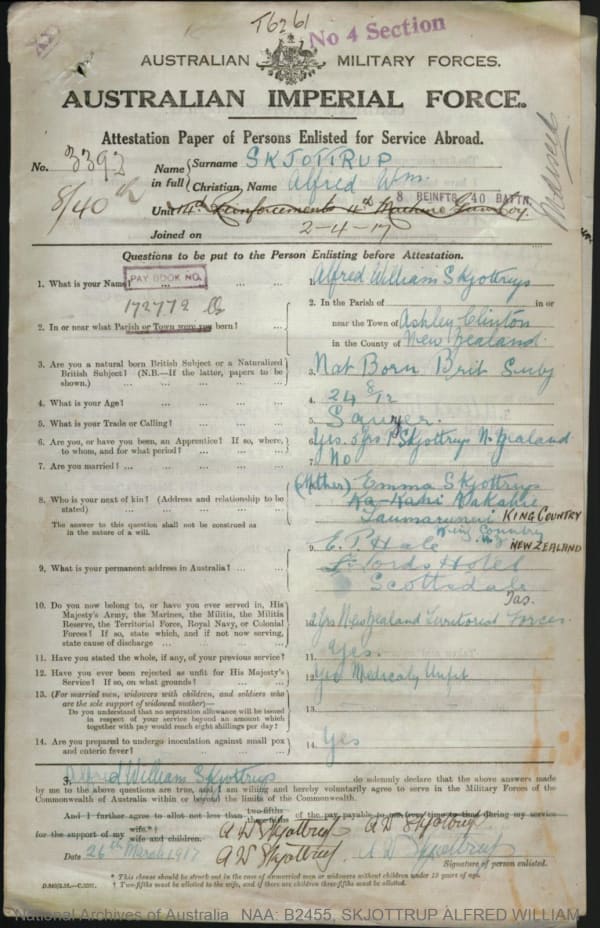 T6261
No 4 Section
AUSTRALIAN MILITARY FORCES.
AUSTRALIAN IMPERIAL FORCE.
Attestation Paper of Persons Enlisted for Service Abroad.
No. 3392 Name in full Surname SKJOTTRUP
Christian Name Alfred Wm.
8/40th
8 REINFTS 40 BATTN.
Unit 14th Reinforcements 4th Machine Gun Coy.
Joined on 2-4-17
Questions to be put to the Person Enlisting before Attestation.
1. What is your Name? ... ... ... 1. Alfred William Skjottrup
PAY BOOK NO.
172772
2. In or near what Parish or Town were you born? ... ... 2. In the Parish of in or
near the Town of Ashley Clinton
in the County of New Zealand.
3. Are you a natural born British Subject or a Naturalized
British Subject? (N.B.—If the latter, papers to be
shown.) ... ... ... 3. Nat Born Brit Subj
4. What is your Age? ... ... ... 4. 24 8/12
5. What is your Trade or Calling? ... ... 5. Sawyer.
6. Are you, or have you been, an Apprentice? If so, where,
to whom, and for what period? ... ... 6. Yes. 5 yrs P Skjottrup N. Zealand
7. Are you married? ... ... ... 7. No
8. Who is your next of kin? (Address and relationship to be
stated) ... ... ... (Mother) Emma Skjottrup
Taumarunui KING COUNTRY
King Country
NEW ZEALAND
The answer to this question shall not be construed as
in the nature of a will.
9. What is your permanent address in Australia? ... ... 9. Lords Hotel
Scottsdale
Tas.
10. Do you now belong to, or have you ever served in, His
Majesty's Army, the Marines, the Militia, the Militia
Reserve, the Territorial Force, Royal Navy, or Colonial
Forces? If so, state which, and if not now serving,
state cause of discharge ... ... New Zealand Territorial Forces.
11. Have you stated the whole, if any, of your previous service? 11. Yes.
12. Have you ever been rejected as unfit for His Majesty's
Service? If so, on what grounds? ... ... 12. Yes Medically Unfit
13. (For married men, widowers with children, and soldiers who
are the sole support of widowed mother)—
Do you understand that no separation allowance will be issued
in respect of your service beyond an amount which
together with pay would reach eight shillings per day? 13.
14. Are you prepared to undergo inoculation against small pox
and enteric fever? ... ... ... 14. Yes
I, Alfred William Skjottrup do solemnly declare that the above answers made
by me to the above questions are true, and I am willing and hereby voluntarily agree to serve in the Military Forces of the
Commonwealth of Australia within or beyond the limits of the Commonwealth.
And I further agree to allot not less than two-fifths three-fifths of the pay payable to me from time to time during my service
for the support of my wife.* † wife and children.
A W Skjottrup A W Skjottrup
Date 26th March 1917 A W Skjottrup A W Skjottrup
Signature of person enlisted.
* This clause should be struck out in the case of unmarried men or widowers without children under 18 years of age.
† Two-fifths must be allotted to the wife, and if there are children three-fifths must be allotted.
National Archives of Australia NAA: B2455, SKJOTTRUP ALFRED WILLIAM